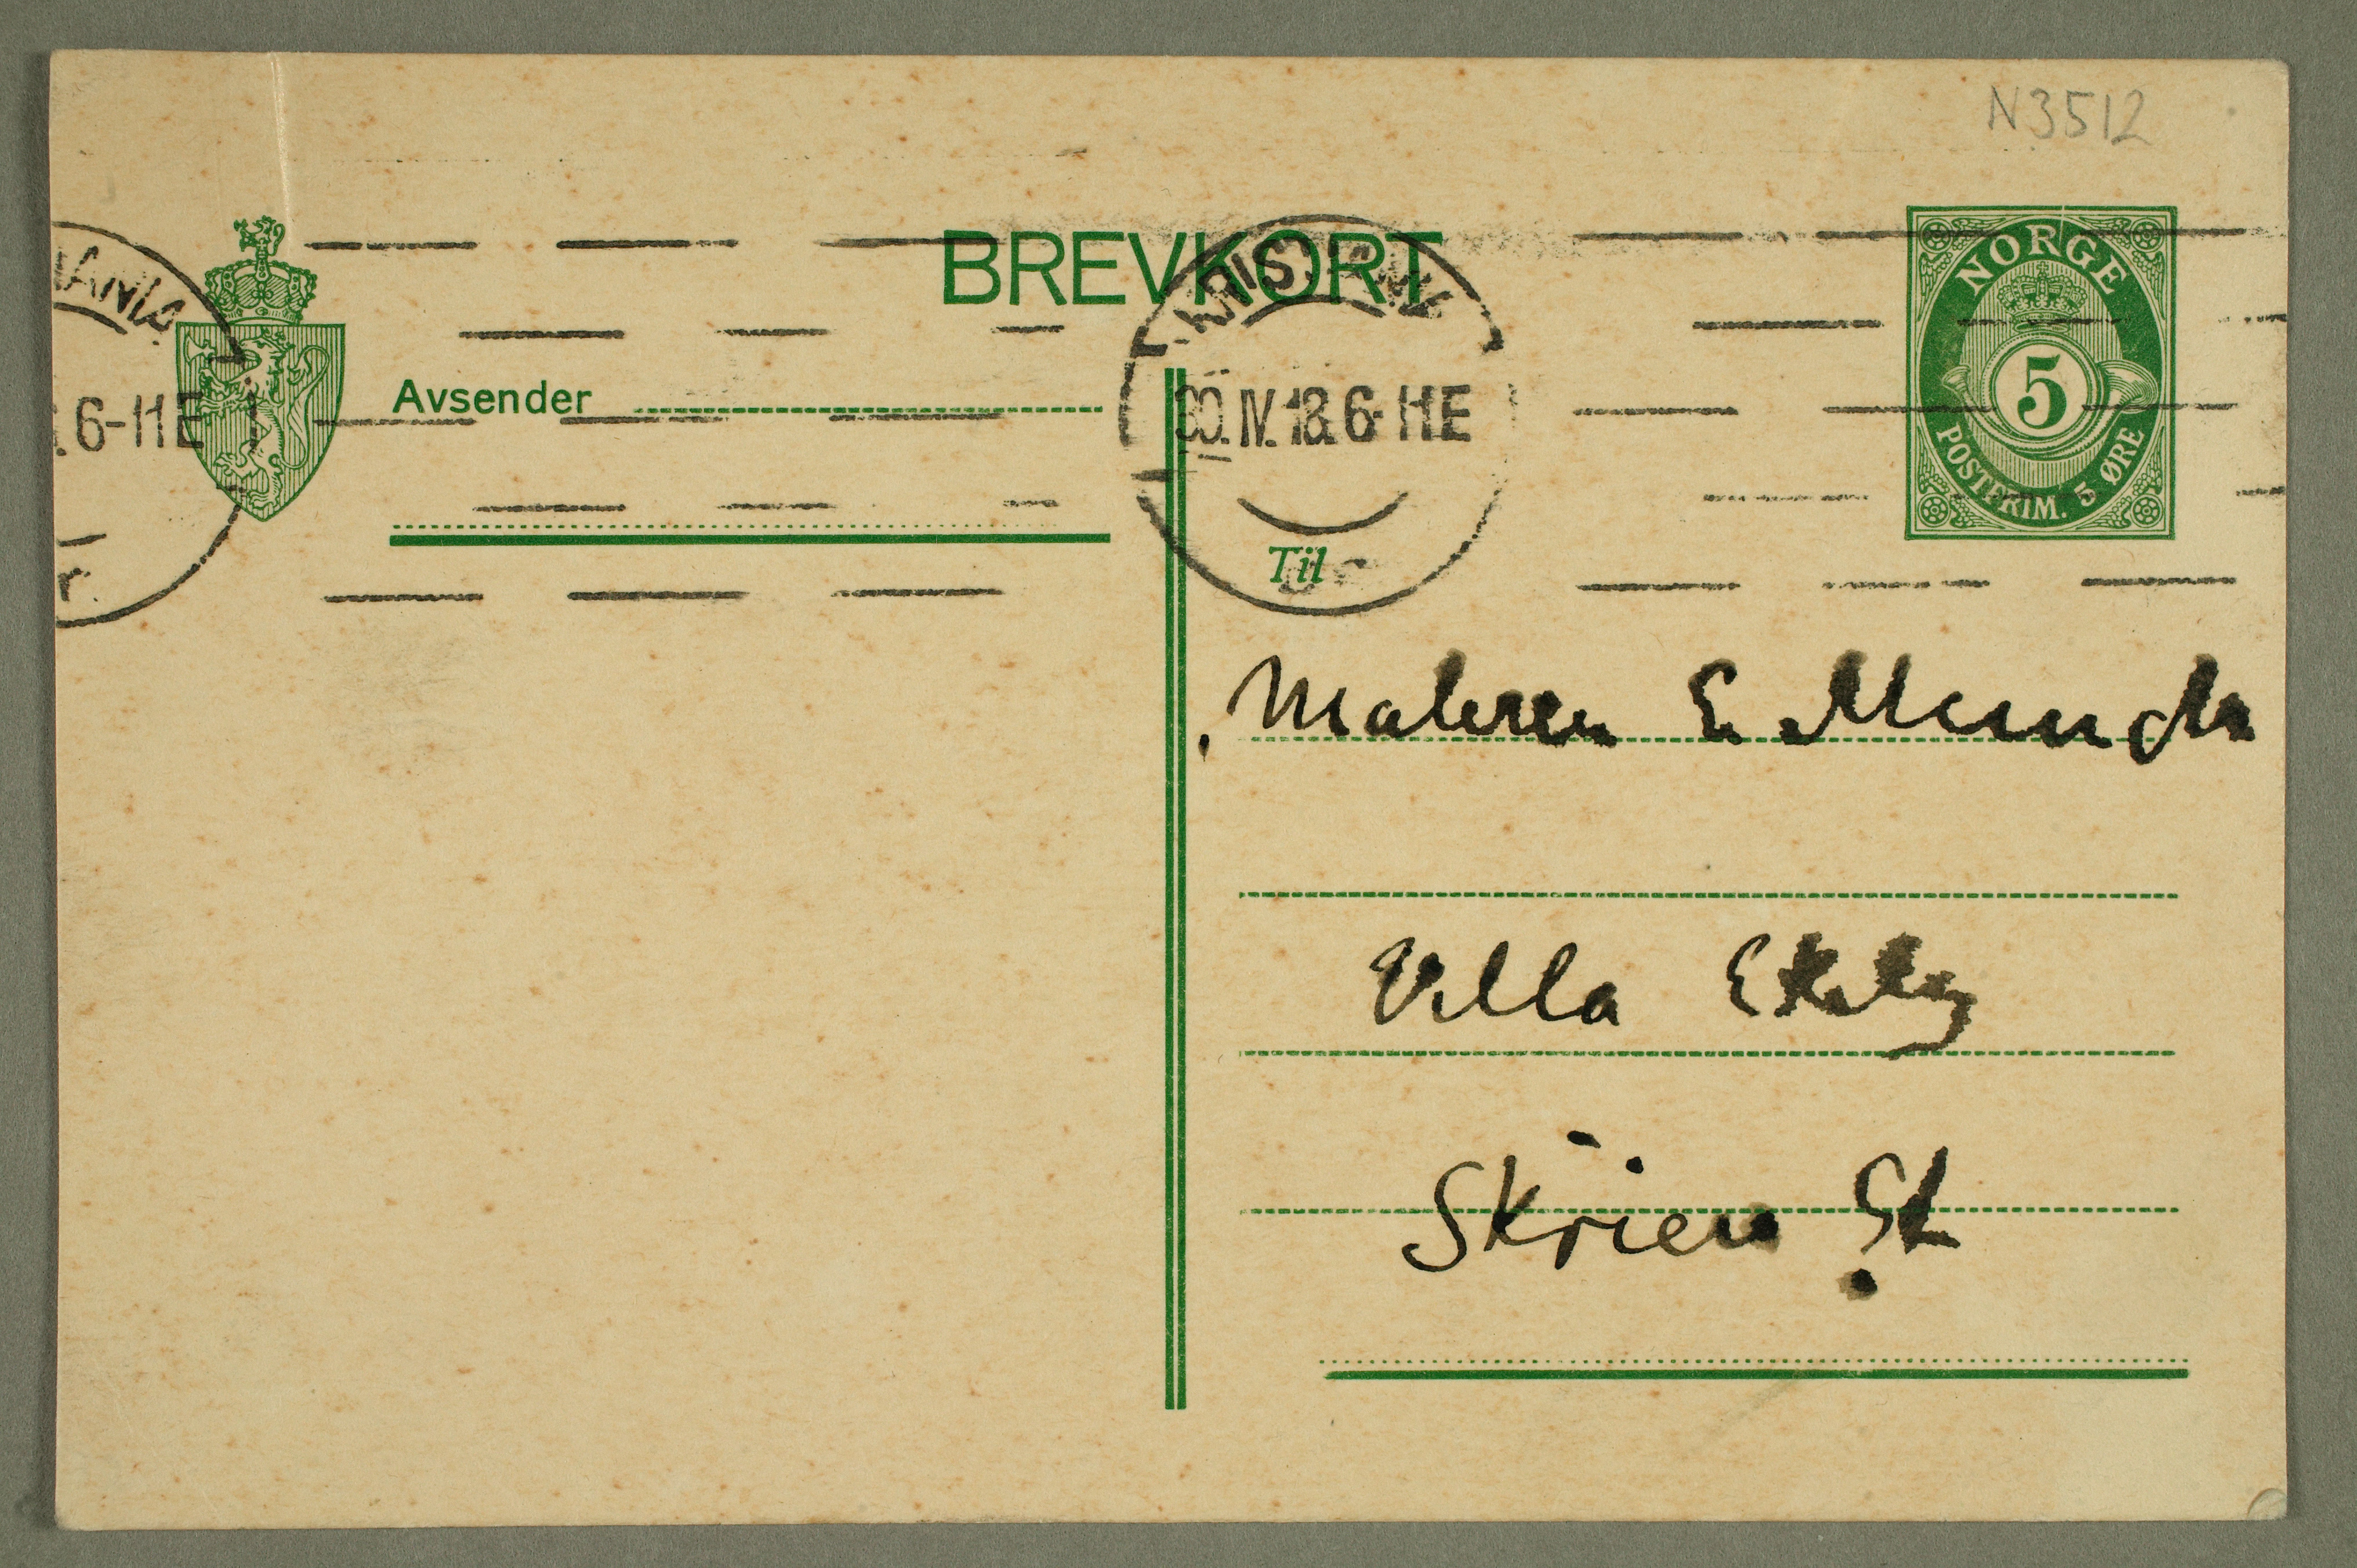 N3512
BREVKORT
NORGE
5
POSTFRIM. 5 ØRE
KRISTIANIA
30.IV.18. 6-11E
IANIA
.6-11E
Avsender
Til
Maleren E. Munch
Villa Ekely
Skøien St